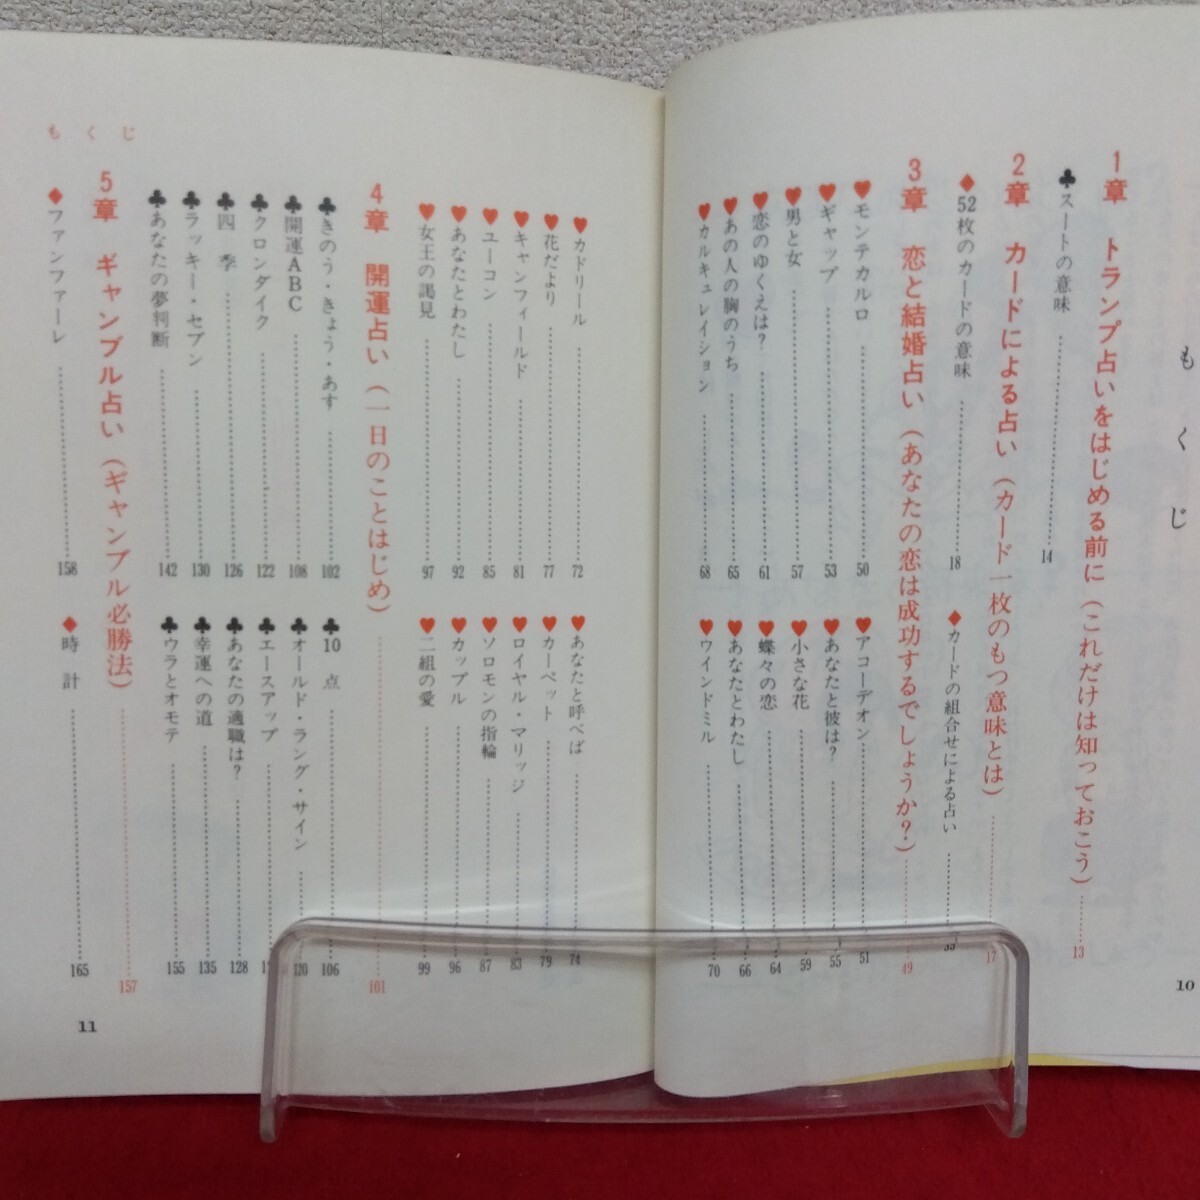 もくじ
1章 トランプ占いをはじめる前に(これだけは知っておこう)……13
♣スートの意味……14
2章 カードによる占い(カード一枚のもつ意味とは)……17
♦52枚のカードの意味……18
♦カードの組合せによる占い……
3章 恋と結婚占い(あなたの恋は成功するでしょうか?)……49
♥モンテカルロ……50
♥アコーデオン……51
♥ギャップ……53
♥あなたと彼は?……55
♥男と女……57
♥小さな花……59
♥恋のゆくえは?……61
♥蝶々の恋……64
♥あの人の胸のうち……65
♥あなたとわたし……66
♥カルキュレイション……68
♥ワインドミル……70
10
♥カドリール……72
♥あなたと呼べば……74
♥花だより……77
♥カーペット……79
♥キャンフィールド……81
♥ロイヤル・マリッジ……83
♥ユーコン……85
♥ソロモンの指輪……87
♥あなたとわたし……92
♥カップル……96
♥女王の謁見……97
♥二組の愛……99
4章 開運占い(一日のことはじめ)……101
♣きのう・きょう・あす……102
♣10点……106
♣開運ABC……108
♣オールド・ラング・サイン……120
♣クロンダイク……122
♣エースアップ……
♣四季……126
♣あなたの適職は?……128
♣ラッキー・セブン……130
♣幸運への道……135
♣あなたの夢判断……142
♣ウラとオモテ……155
5章 ギャンブル占い(ギャンブル必勝法)……157
♦ファンファーレ……158
♦時計……165
もくじ
11